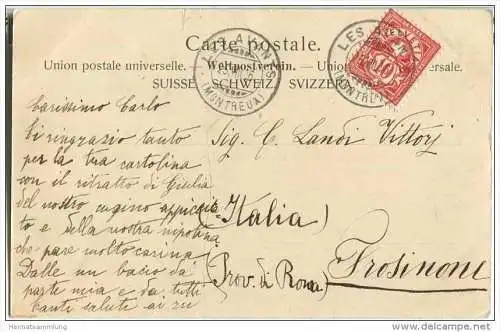 Carte postale.
Union postale universelle. Weltpostverein. Union universale.
SUISSE SCHWEIZ SVIZZERA
LES AVANTS
(MONTREUX)
LES
(MONTREUX)
10
Carissimo Carlo
ti ringrazio tanto
per la tua cartolina
con il ritratto di Giulia
del nostro cugino
to e della nostra nipotina
che pare molto carina
Dalle un bacio da
parte mia e da tutti
tanti saluti ai zii
Sig. C. Landi Vittorj
(Italia)
(Prov. di Roma)
Frosinone
Hematsammlung